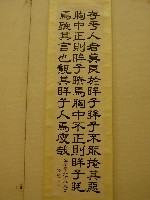 存乎人者莫良於眸子眸子不能掩其惡
胸中正則眸子瞭焉胸中不正則眸子眊
焉聽其言也觀其眸子人焉廋哉